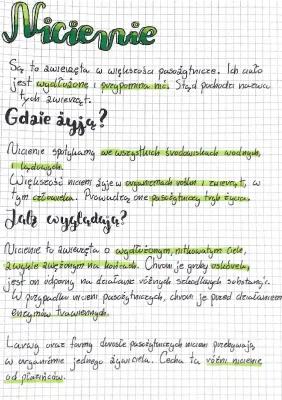 Nicienie
Są to zwierzęta w większości pasożytnicze. Ich ciało
jest wydłużone i przypomina nić. Stąd pochodzi nazwa
tych zwierząt.
Gdzie żyją?
Nicienie spotykamy we wszystkich środowiskach wodnych,
i lądowych.
Większość nicieni żyje w organizmach roślin i zwierząt, w
tym człowieka. Prowadzą one pasożytniczy tryb życia.
Jak wyglądają?
Nicienie to zwierzęta o wydłużonym, nitkowatym ciele,
zwykle zwężonym na końcach. Chroni je gruby oskórek,
jest on odporny na działanie różnych szkodliwych substancji.
W przypadku nicieni pasożytniczych, chroni je przed działaniem
enzymów trawiennych.
Larwy oraz formy dorosłe pasożytniczych nicieni przebywają
w organizmie jednego żywiciela. Cecha ta różni nicienie
od płazińców.